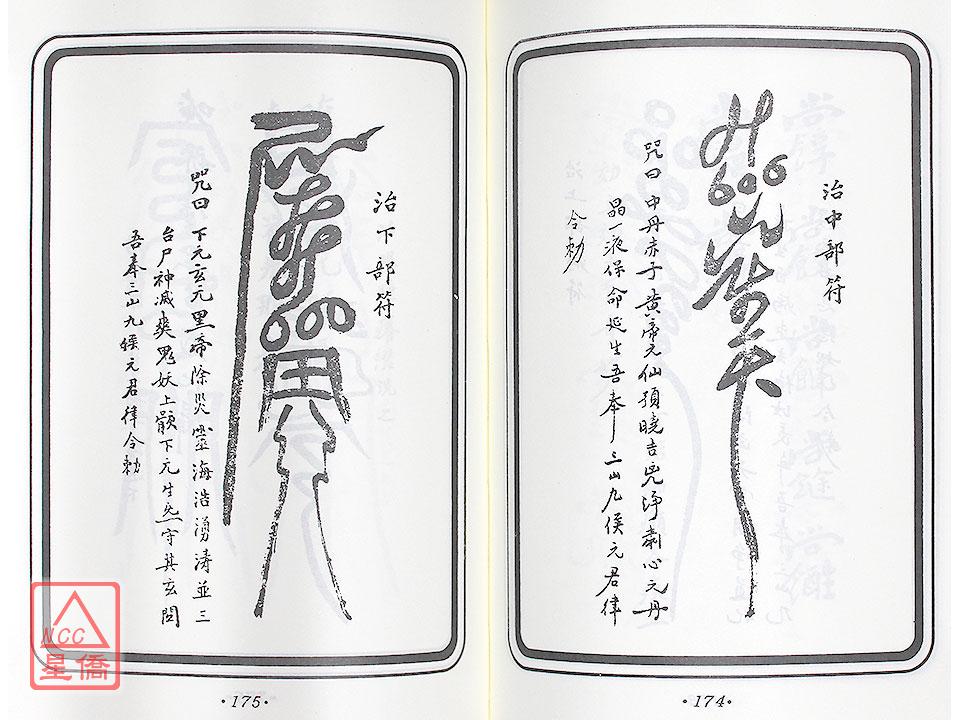 治中部符
咒曰 中丹赤子黄帝元仙預曉吉兇淨肅心元丹
晶一液保命延生吾奉三山九侯元君律
令勅
·174·
治下部符
咒曰 下元玄元黑帝除災靈海浩湧濤並三
台尸神滅爽鬼妖上顥下元生炁守其玄
吾奉三山九侯元君律令勅
·175·
NCC
星僑